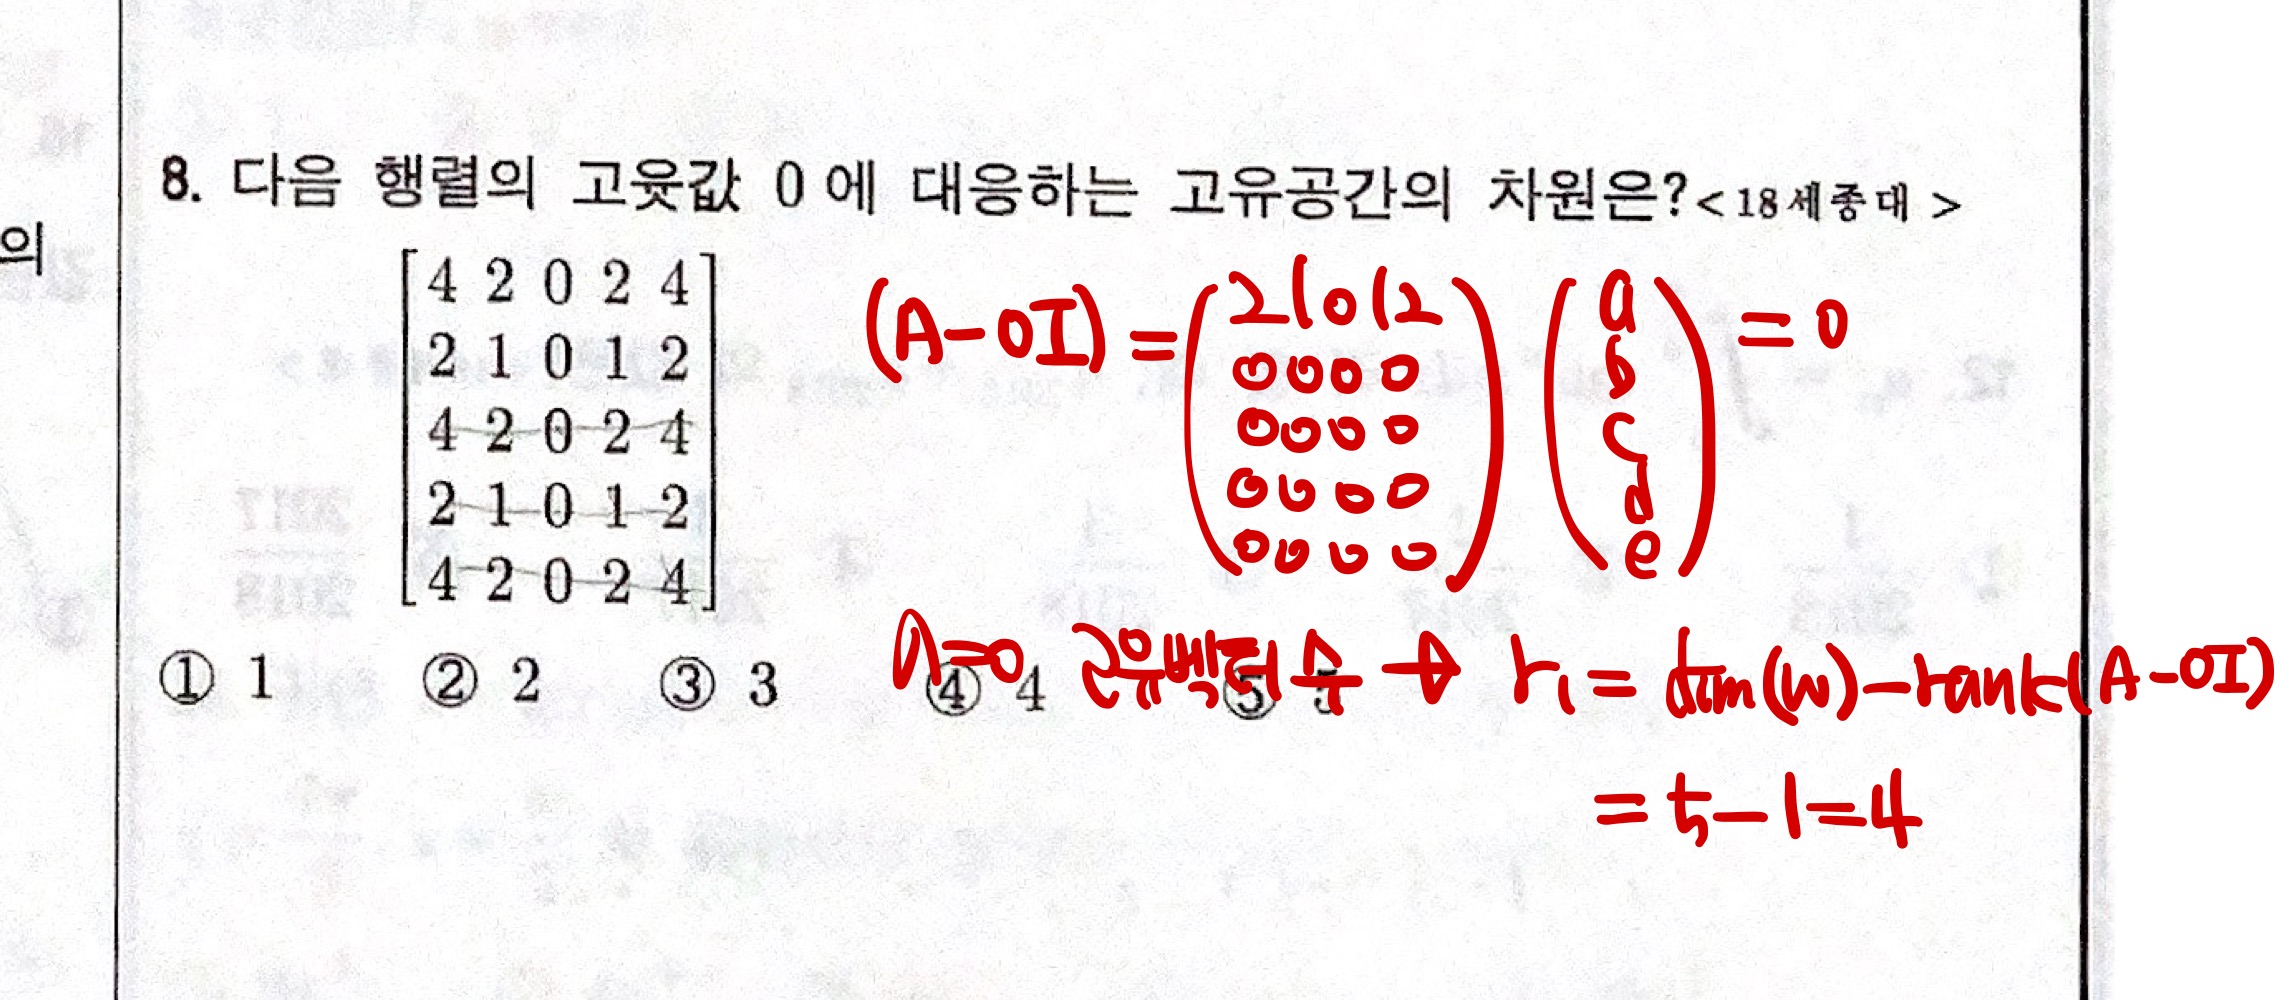 의
8. 다음 행렬의 고윳값 0에 대응하는 고유공간의 차원은?<18세종대>
4 2 0 2 4
2 1 0 1 2
4 2 0 2 4
2 1 0 1 2
4 2 0 2 4
(A-0I) = (2 1 0 1 2) (a) = 0
0 0 0 0 b
0 0 0 0 c
0 0 0 0 d
0 0 0 0 e
① 1 ② 2 ③ 3 ④ 4 ⑤ 5
λ=0 고유벡터 수 → r₁ = dim(W)-rank(A-0I)
= 5-1=4